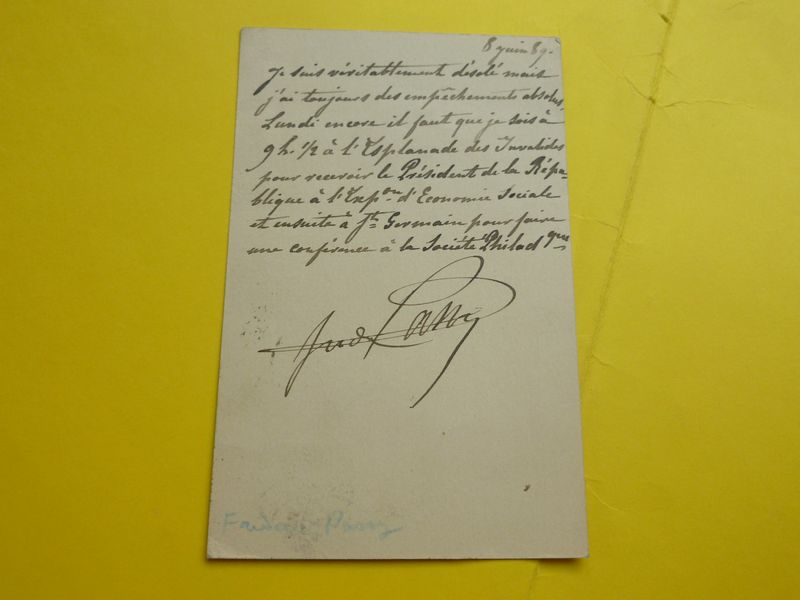 8 juin 89.
Je suis véritablement désolé mais
j'ai toujours des empêchements absolus,
Lundi encore il faut que je sois à
9 h. 1/2 à l'Esplanade des Invalides
pour recevoir le Président de la Répu-
blique à l'Expon d'Economie Sociale
et ensuite à St Germain pour faire
une conférence à la Société Philad que
Fred Passy
Frederic Passy